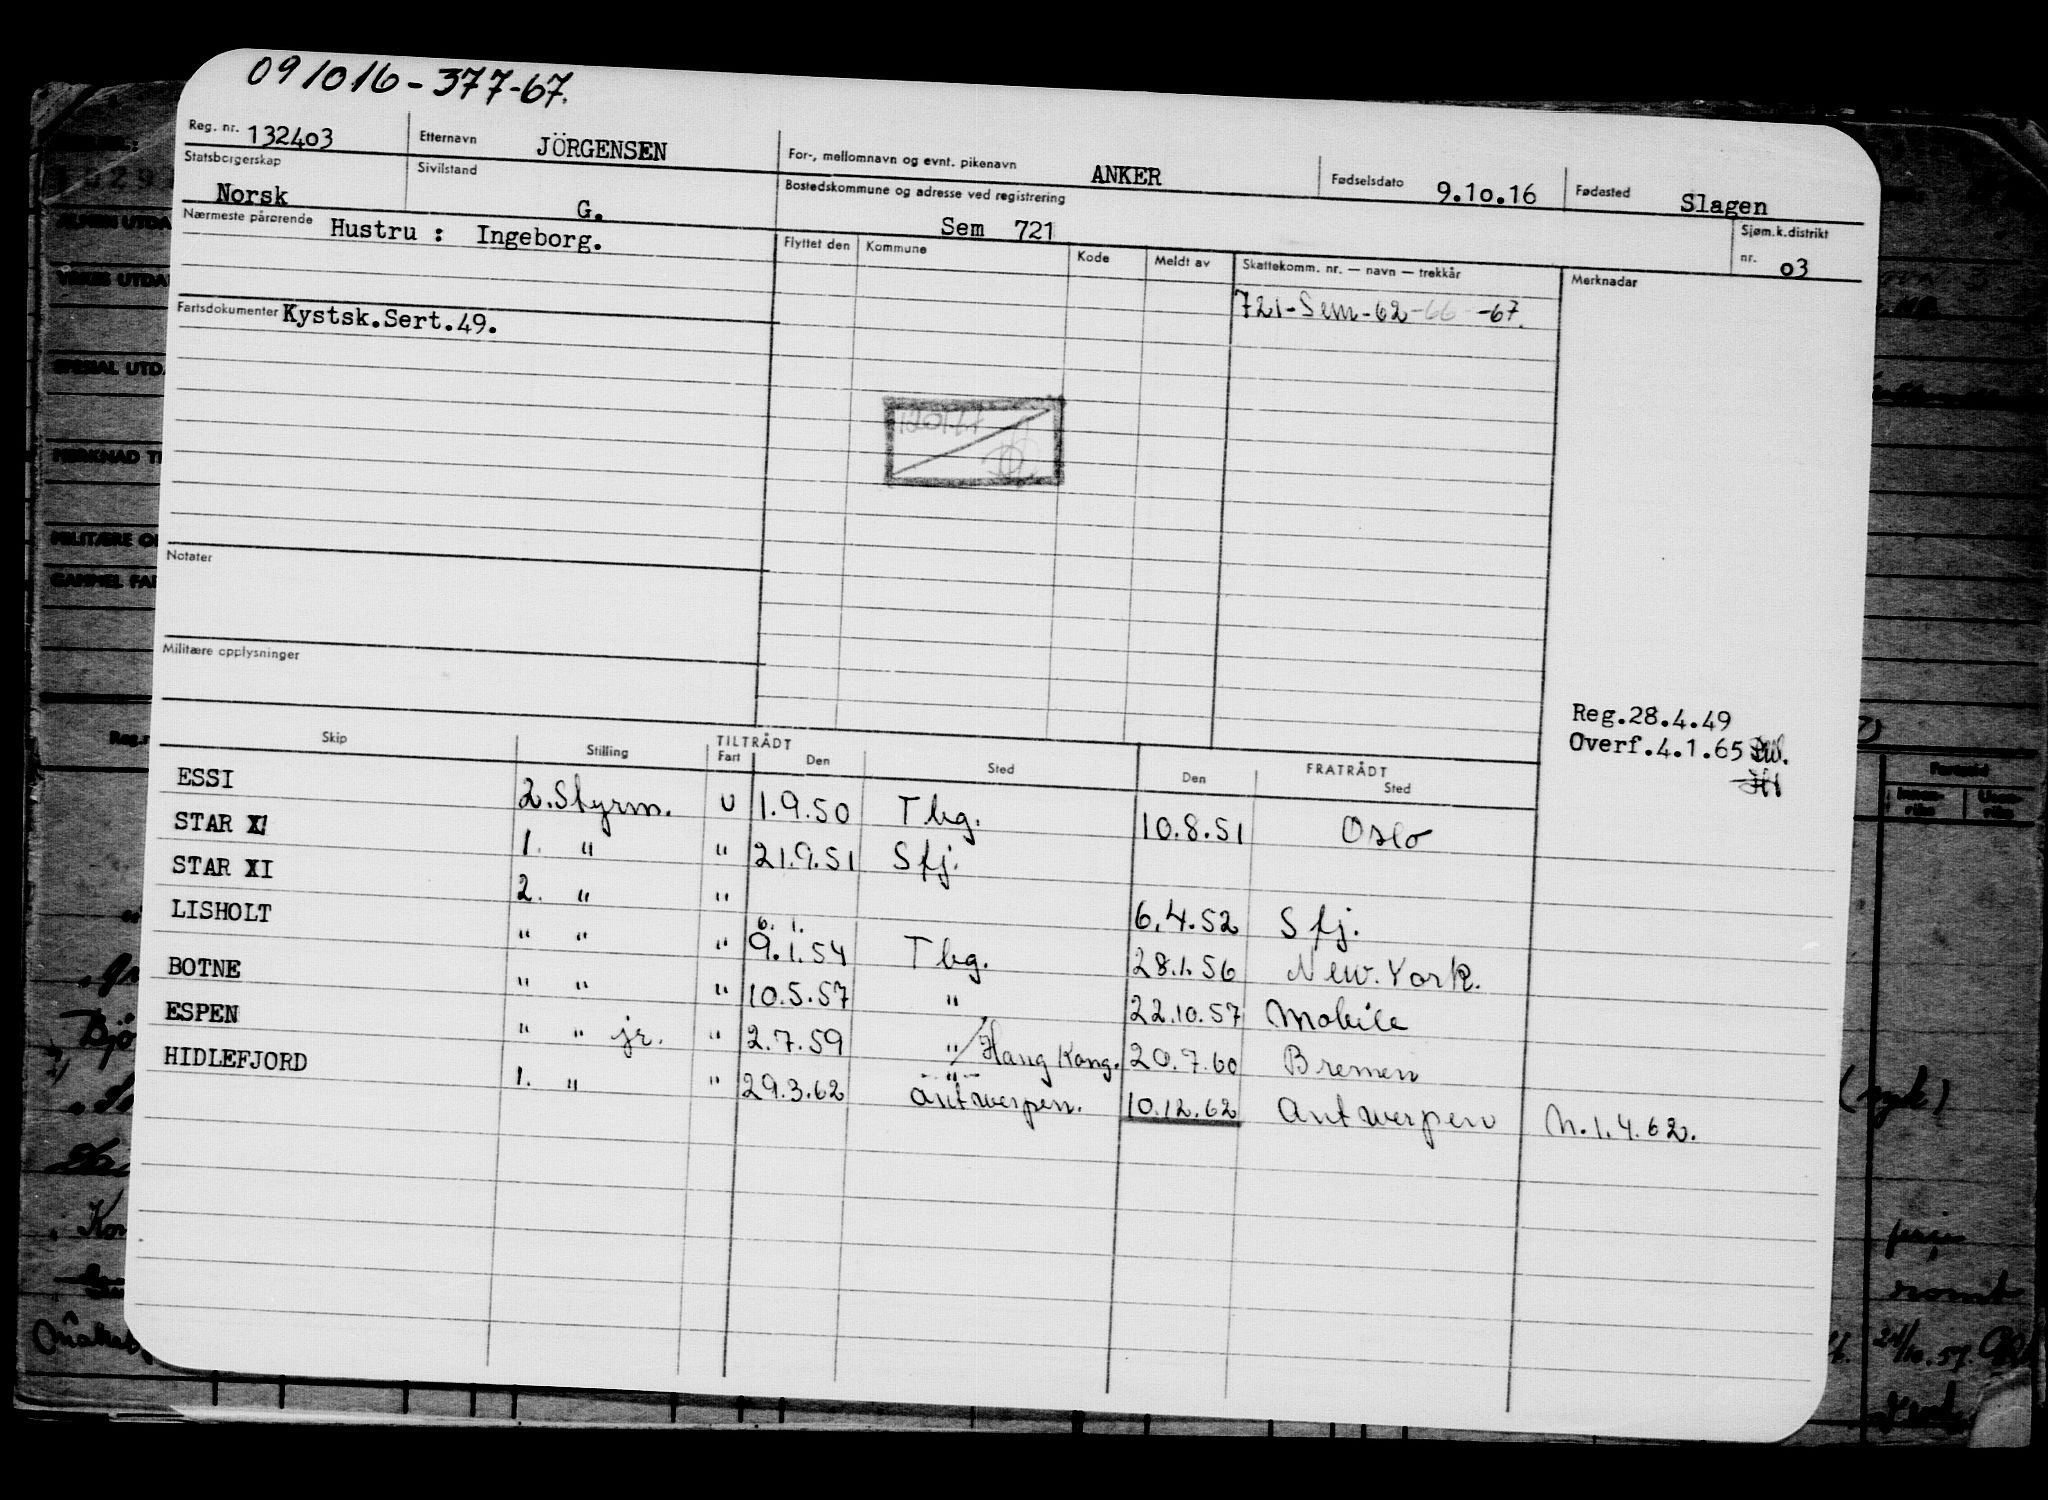 091016-377-67.
Reg. nr. 132403 Etternavn JÖRGENSEN For-, mellomnavn og evnt. pikenavn ANKER Fødselsdato 9.10.16 Fødested Slagen
Statsborgerskap Norsk Sivilstand G. Bostedskommune og adresse ved registrering Sem 721 Sjøm.k.distrikt nr. 03
Nærmeste pårørende Hustru : Ingeborg.
Flyttet den Kommune Kode Meldt av Skattekomm. nr. — navn — trekkår Merknadar
721-Sem-62-66-67.
Fartsdokumenter Kystsk.Sert.49.
Notater
Militære opplysninger
Reg.28.4.49
Overf.4.1.65
TILTRÅDT FRATRÅDT
Skip Stilling Fart Den Sted Den Sted
ESSI 2. Styrm. U 1.9.50 Tbg. 10.8.51 Oslo
STAR XI 1. " " 21.9.51 Sfj.
STAR XI 2. " " 6.4.52 Sfj.
6. 1.
LISHOLT " " " 9.1.54 Tbg. 28.1.56 New.York.
BOTNE " " " 10.5.57 " 22.10.57 Mobile
ESPEN " " jr. " 2.7.59 "/Hang Kong. 20.7.60 Bremen
HIDLEFJORD 1. " " 29.3.62 Antwerpen. 10.12.62 Antwerpen N.1.4.62.